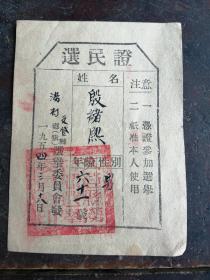 選民證
注意
一 憑證參加選舉
二 祗准本人使用
姓名
殷緒熙
性別
男
年齡
六十一
文登縣
選舉委員會發
一九五四年三月八日